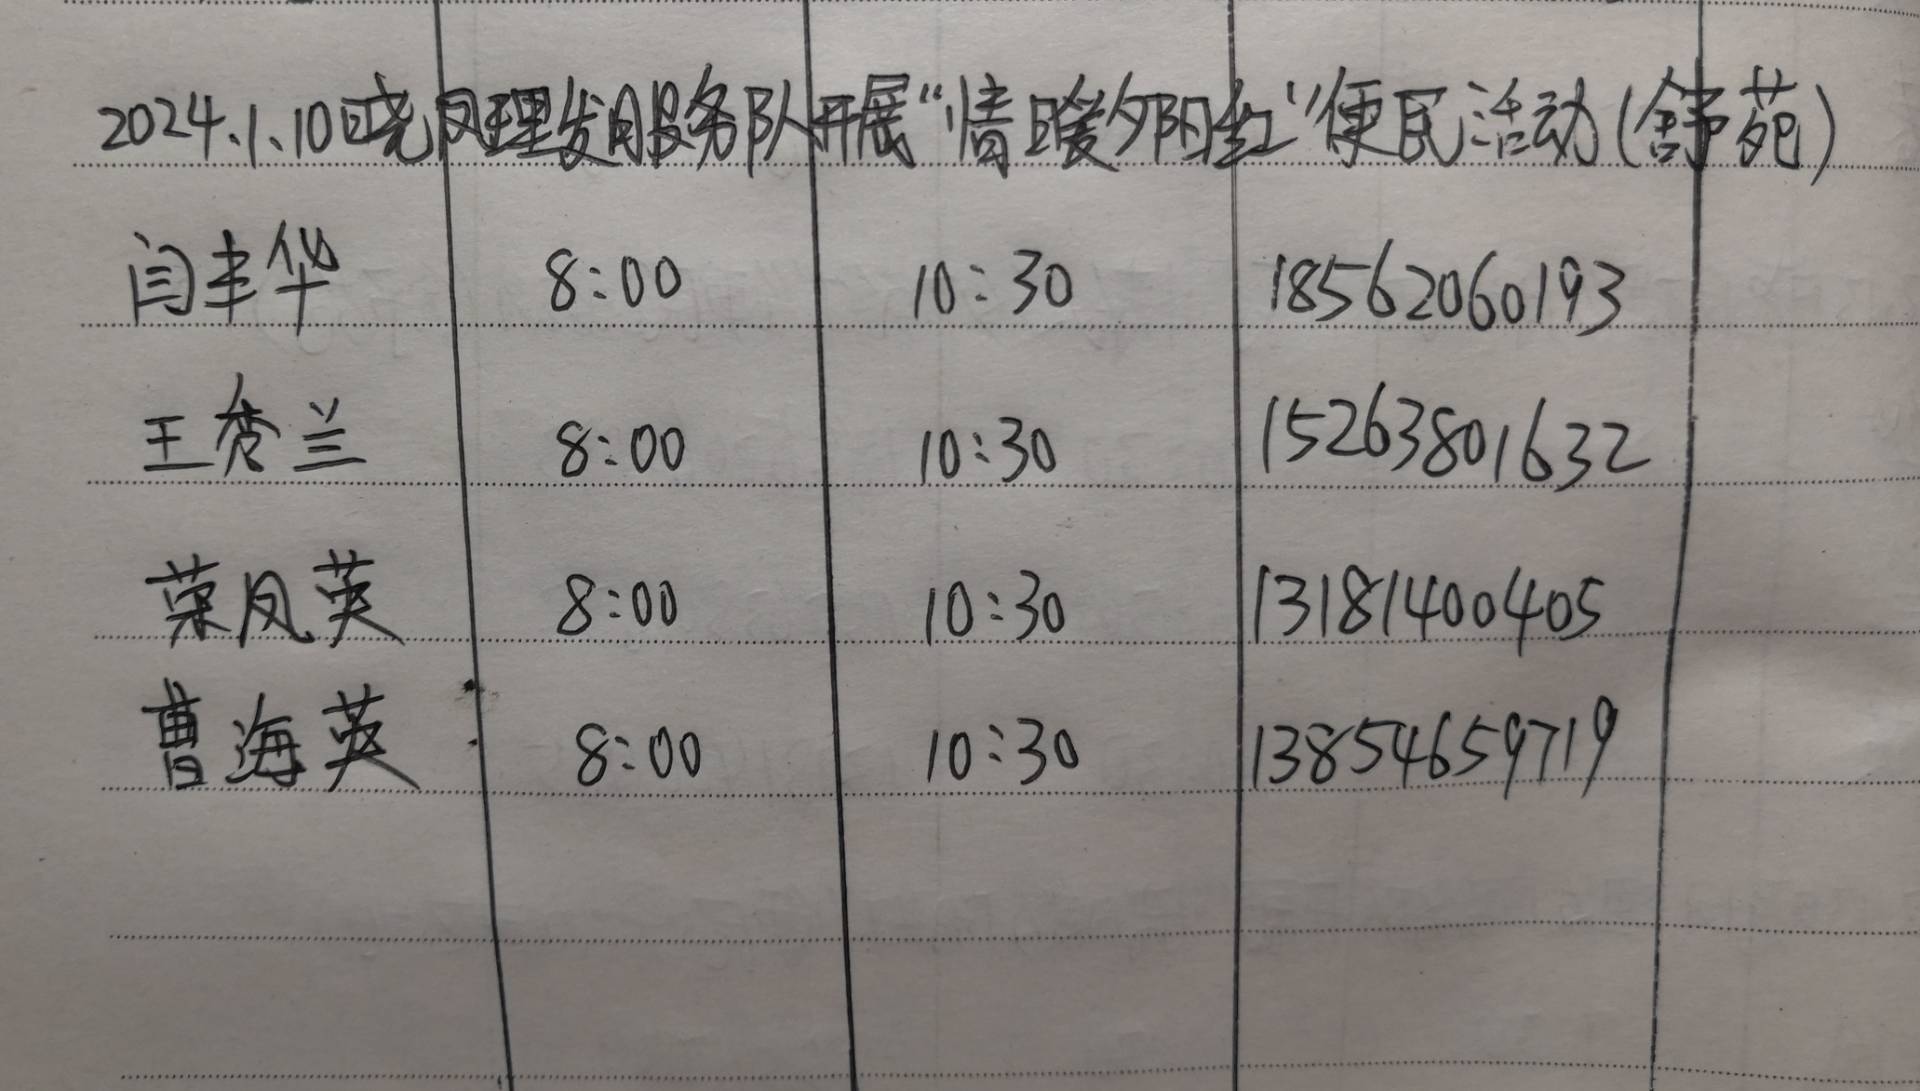 2024.1.10日晓凤理发服务队开展“情暖夕阳红”便民活动(舒苑)
闫丰华 8:00 10:30 18562060193
王秀兰 8:00 10:30 15263801632
荣凤英 8:00 10:30 13181400405
曹海英 8:00 10:30 13854659719